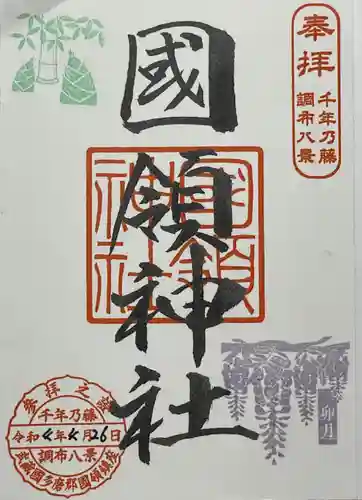 奉拝
千年乃藤
調布八景
國領神社
國領神社
卯月
参拝之證
千年乃藤
令和4年4月26日
調布八景
武蔵國多磨郡國領鎮座